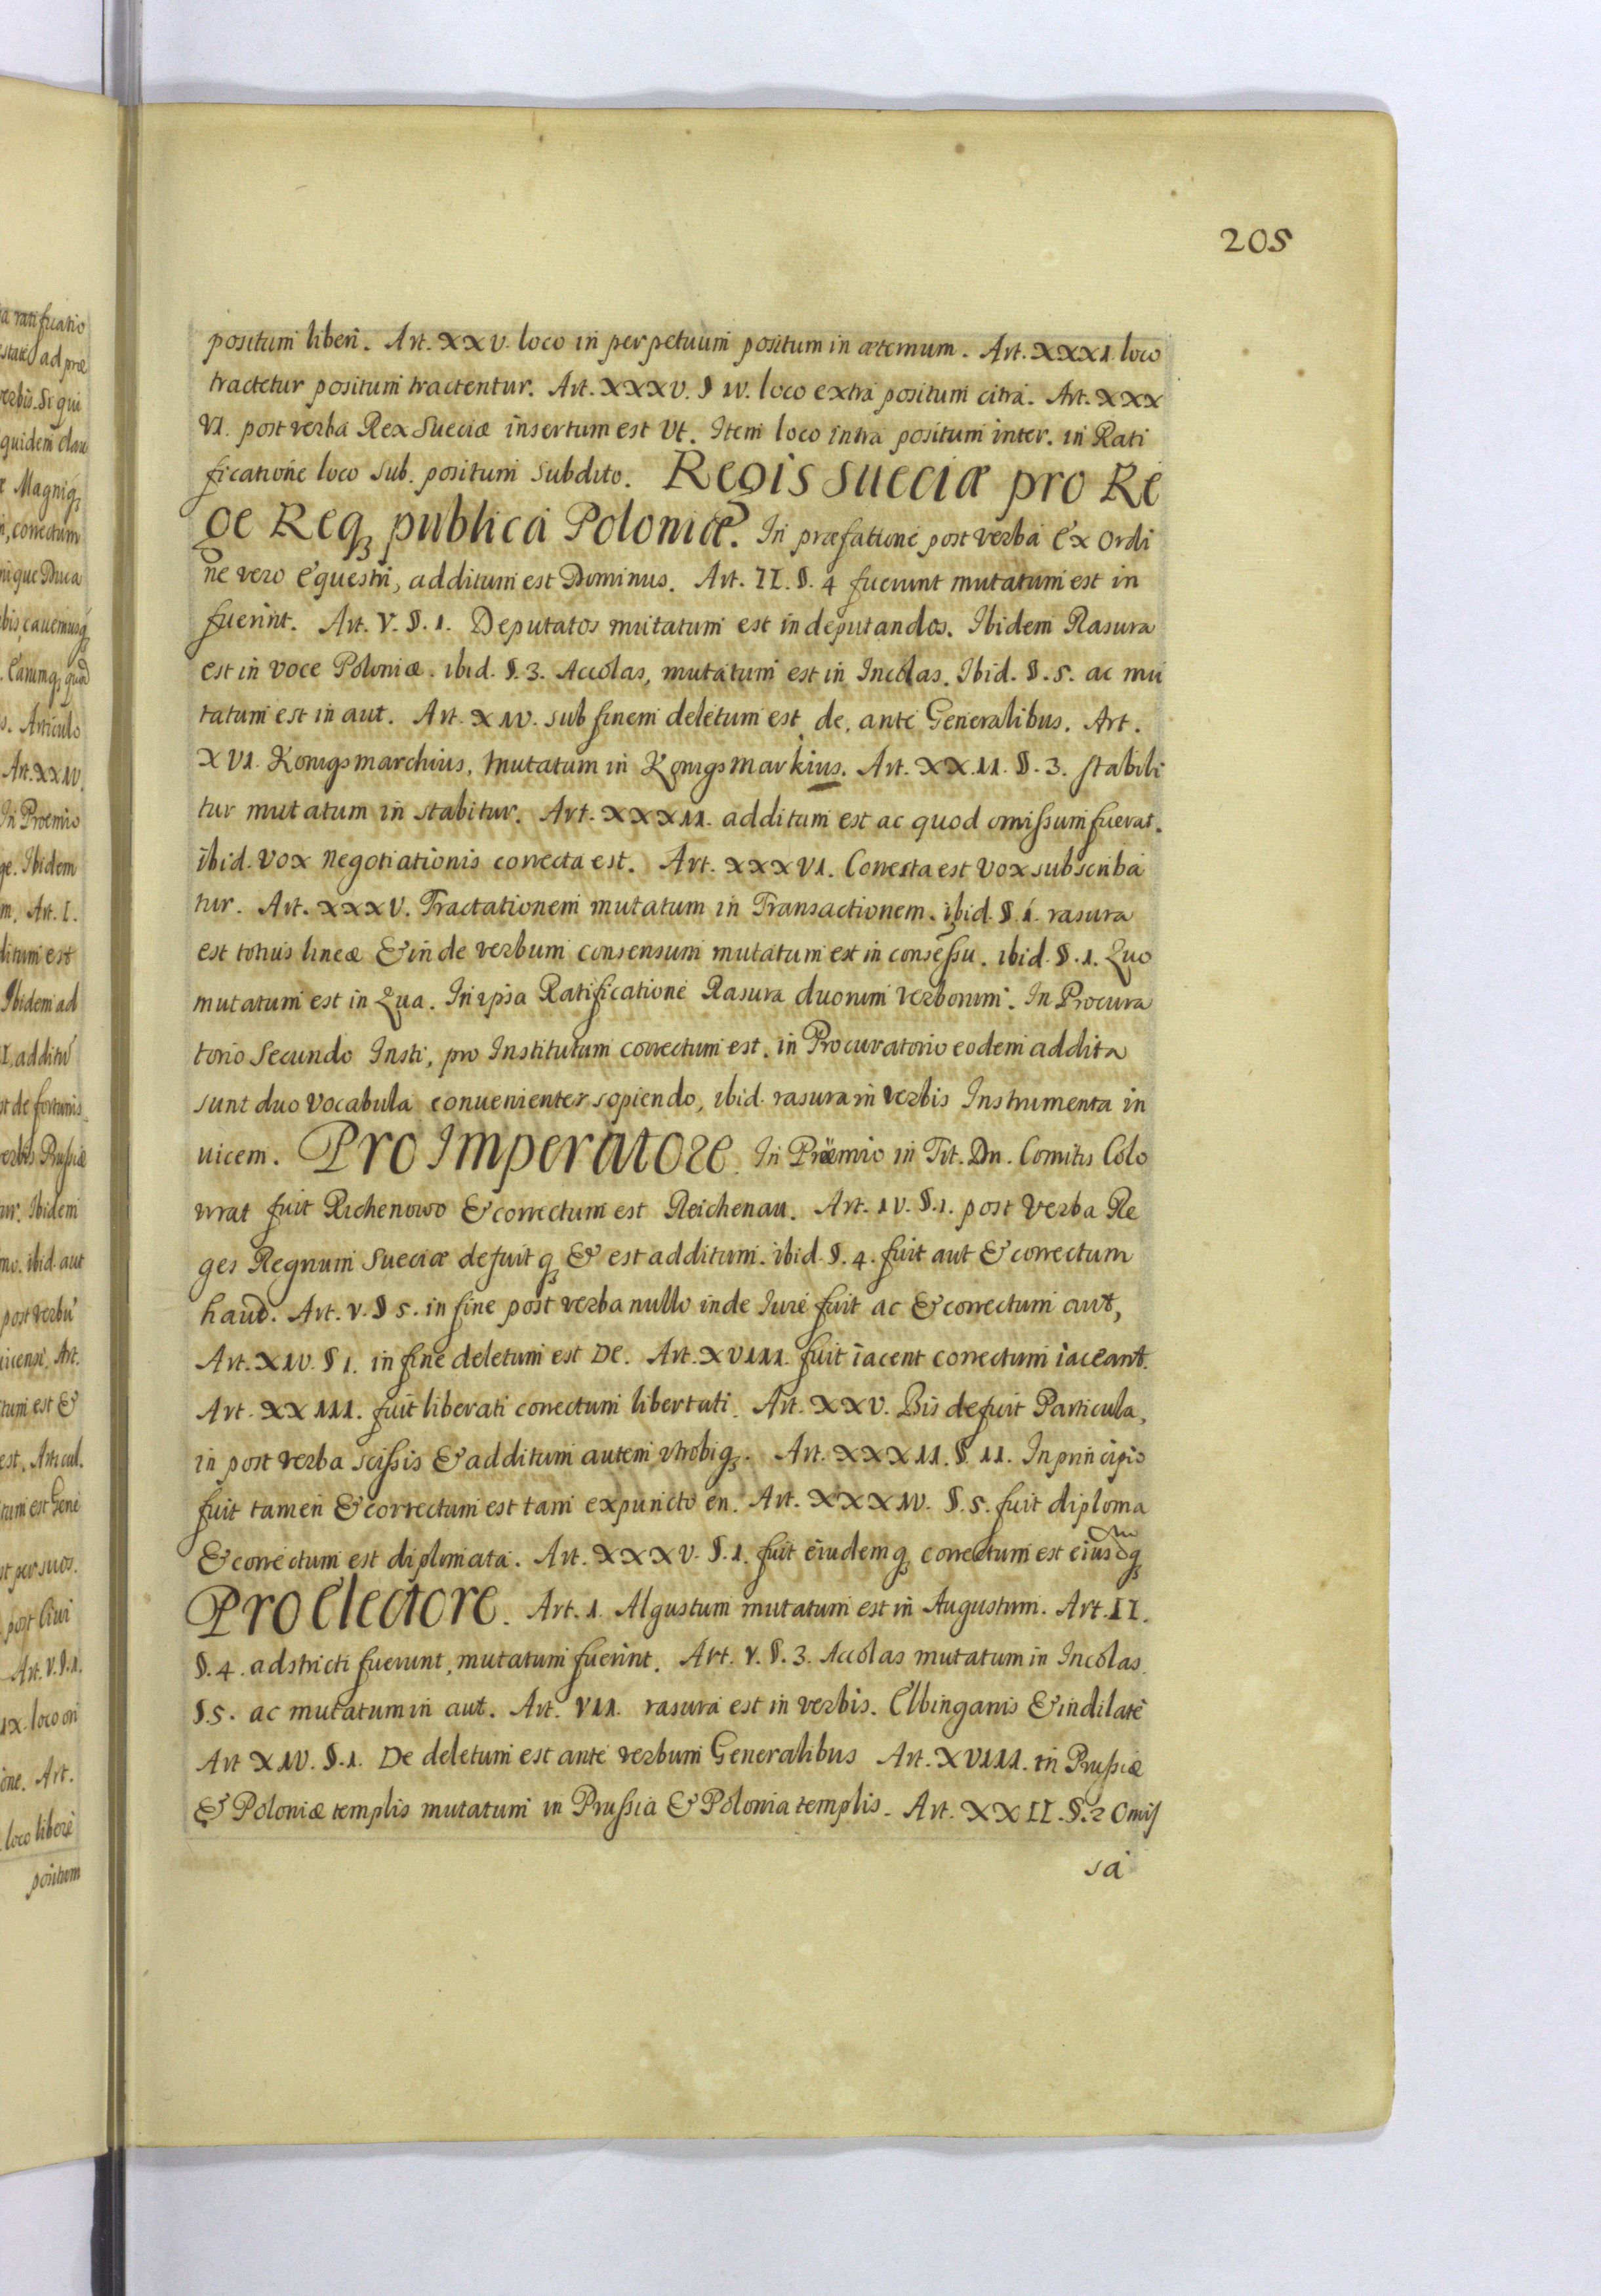 205
positum liberi. Art. XXV. loco in perpetuum positum in æternum. Art. XXXI. loco
tractetur positum tractentur. Art. XXXV. § IV. loco extra positum citra. Art. XXX
VI. post verba Rex Sueciæ insertum est Vt. Item loco intra positum inter. in Rati
ficatione loco sub. positum subdito. Regis Sueciæ pro Re
ge Req publica Poloniæ. In præfatione post verba Ex Ordi
ne vero Equestri, additum est Dominus. Art. II. §. 4 fuerunt mutatum est in
fuerint. Art. V. §. 1. Deputatos mutatum est in deputandos. Ibidem Rasura
est in voce Poloniæ. ibid. §. 3. Accolas, mutatum est in Incolas. Ibid. §. 5. ac mu
tatum est in aut. Art. XIV. sub finem deletum est, de, ante Generalibus. Art.
XVI. Konigsmarchius, mutatum in Konigsmarkius. Art. XXII. §. 3. stabili
tur mutatum in stabitur. Art. XXXII. additum est ac quod omissum fuerat.
ibid. vox negotiationis correcta est. Art. XXXVI. Correcta est vox subscriba
tur. Art. XXXV. Tractationem mutatum in Transactionem. ibid. §. 1. rasura
est totius lineæ & inde verbum consensum mutatum est in consessu. ibid. §. 1. Quo
mutatum est in Qua. In ipsa Ratificatione Rasura duorum verborum. In Procura
torio Secundo Insti, pro Institutum correctum est. in Procuratorio eodem addita
sunt duo Vocabula conuenienter sopiendo, ibid. rasura in verbis Instrumenta in
uicem. Pro Imperatore. In Præmio in Tit. Dn. Comitis Colo
wrat fuit Richenowo & correctum est Reichenau. Art. IV. §. 1. post verba Re
ges Regnum Sueciæ defuit q & est additum. ibid. §. 4. fuit aut & correctum
haud. Art. V. § 5. in fine post verba nullo inde Iure fuit ac & correctum aut,
Art. XIV. § 1. in fine deletum est De. Art. XVIII. fuit iacent correctum iaceant.
Art. XXIII. fuit liberati correctum libertati. Art. XXV. Bis defuit Particula,
in post verba scissis & additum autem vtrobiq. Art. XXXII. §. II. In principio
fuit tamen & correctum est tam expuncto en. Art. XXXIV. §. 5. fuit diploma
& correctum est diplomata. Art. XXXV. §. 1. fuit eiudemq correctum est eiusdq
Pro Electore. Art. 1. Algustum mutatum est in Augustum. Art. II.
§. 4. adstricti fuerunt, mutatum fuerint. Art. V. §. 3. Accolas mutatum in Incolas.
§. 5. ac mutatum in aut. Art. VII. rasura est in verbis. Elbinganis & indilatè
Art XIV. §. 1. De deletum est ante verbum Generalibus Art. XVIII. in Prussiæ
& Poloniæ templis mutatum in Prussia & Polonia templis. Art. XXII. §. 2 Omis
sa